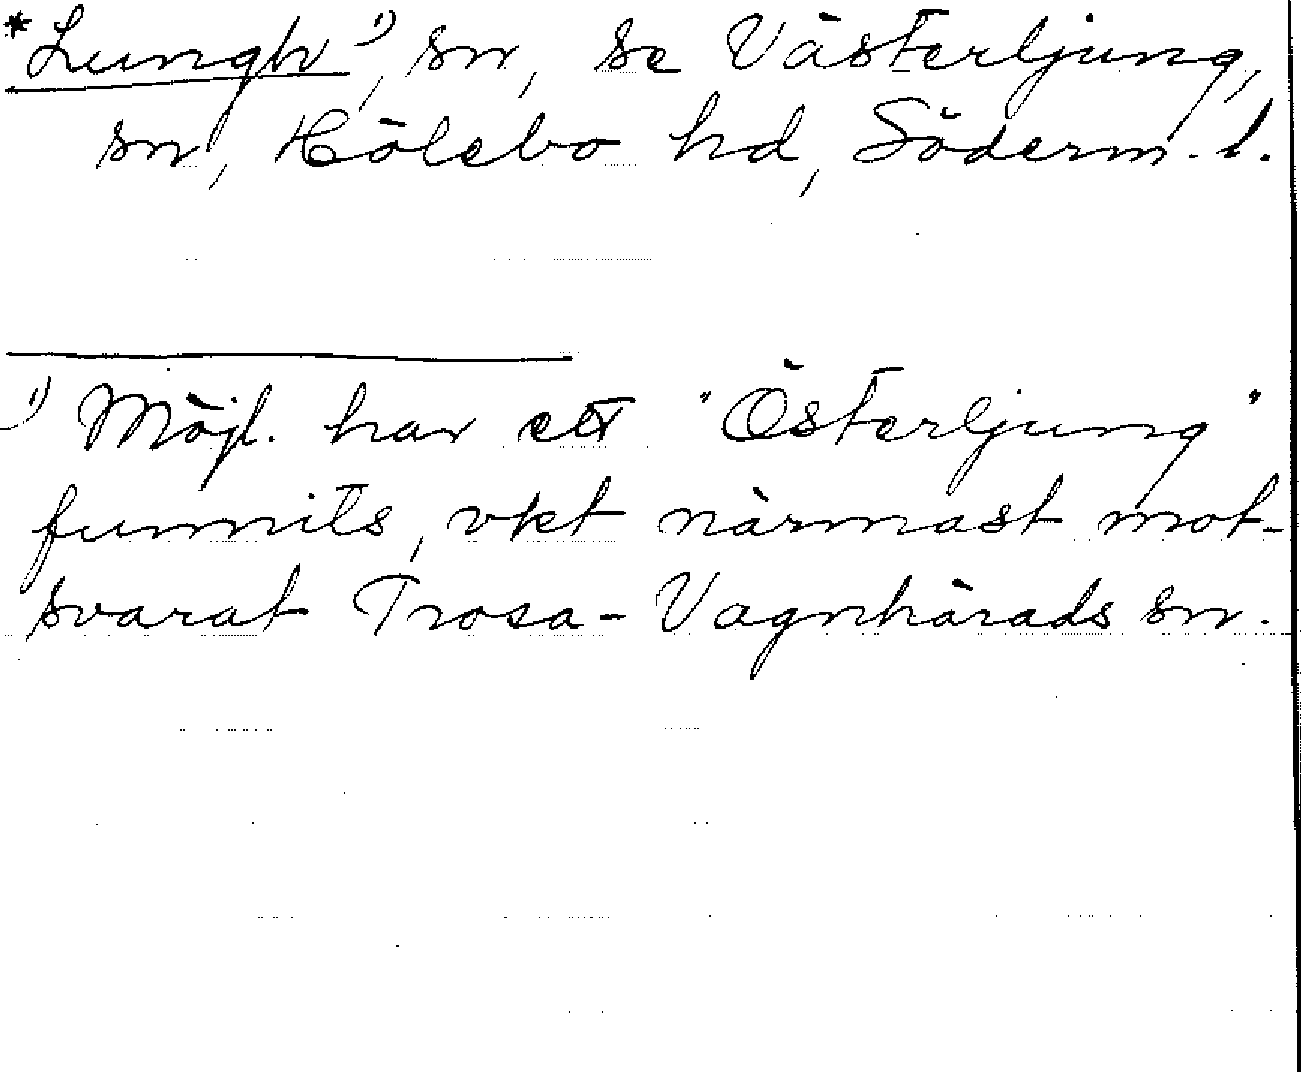 *Lungh ¹), sn, se Västerljung,
sn, Hölebo hd, Söderm. l.
¹) Möjl. har ett "Österljung"
funnits, vkt närmast mot-
svarat Trosa-Vagnhärads sn.